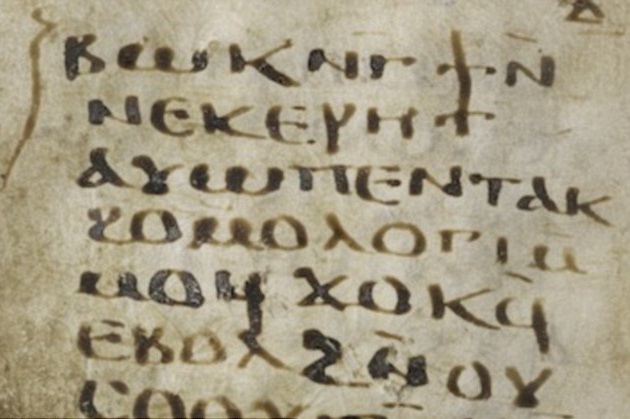 ⲃⲱⲕⲛ̄ⲅϯⲛ̄
ⲛⲉⲕⲉⲣⲏⲧ
ⲁⲩⲱⲡⲉⲛⲧⲁⲕ
ϩⲟⲙⲟⲗⲟⲅⲓⲙ̄
ⲙⲟϥ ϫⲟⲕϥ̄
ⲉⲃⲟⲗϩⲛ̄ⲟⲩ